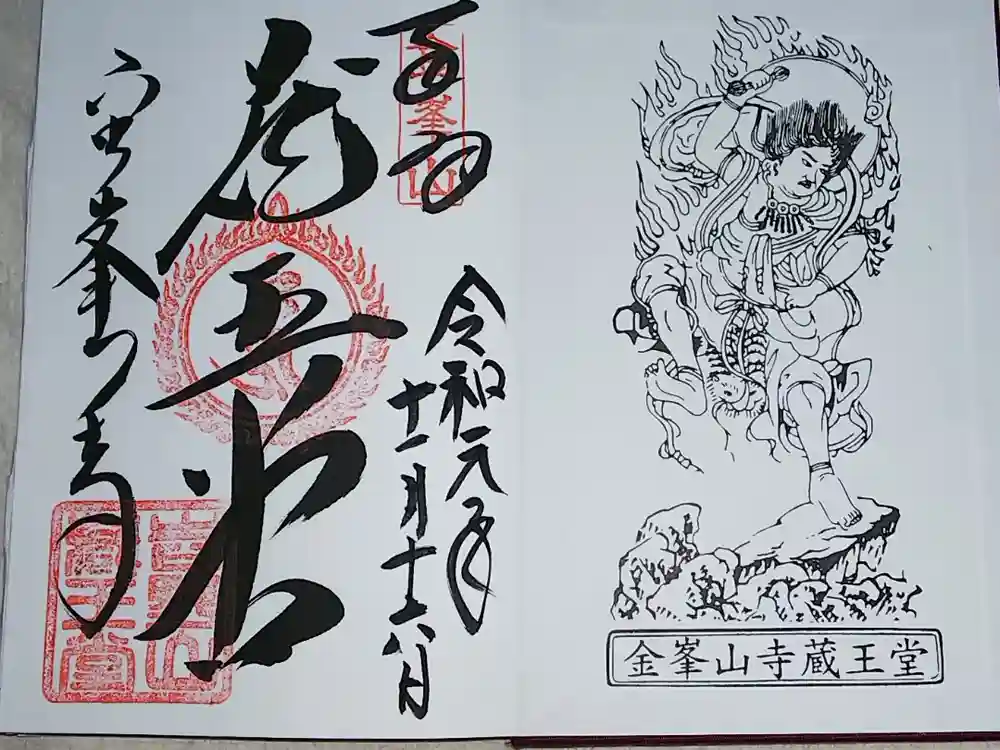 金峯山寺蔵王堂
奉拝
金峯山
令和元年
十一月十六日
蔵王堂
金峯山寺
吉野山
蔵王堂